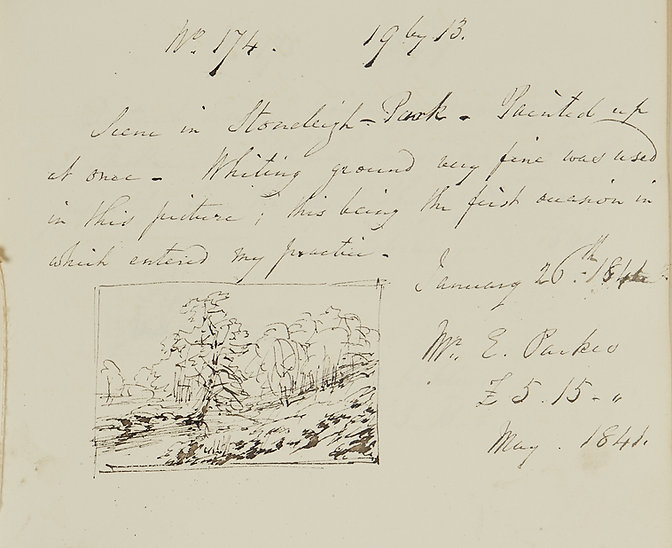 No. 174. 19 by 13.
Scene in Stoneleigh-Park - Painted up
at once - Whiting ground very fine was used
in this picture; this being the first occasion in
which entered my practice -
January 26th 1841
Mr. E. Parkes
£ 5. 15 - "
May. 1841.